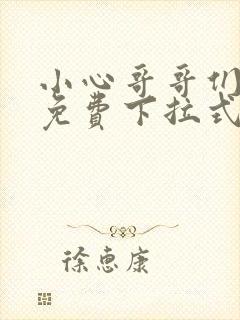 小心哥哥们
免费下拉式
徐惠康